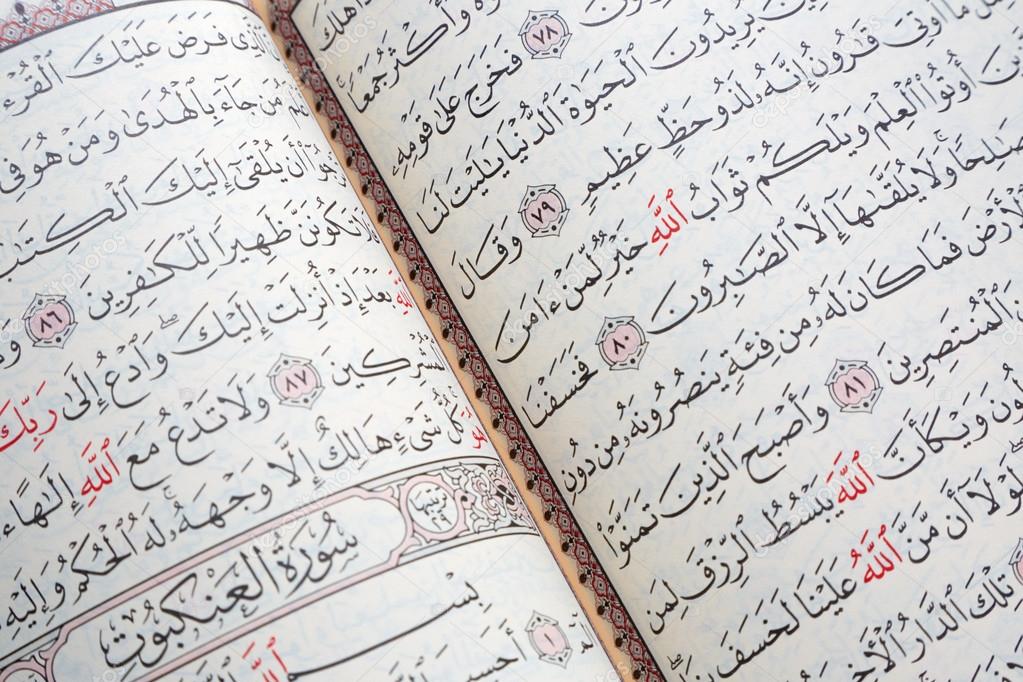 أَهْلَكَ
وَأَكْثَرُ جَمْعًا
٧٨ فَخَرَجَ عَلَىٰ قَوْمِهِ
يُرِيدُونَ ٱلْحَيَوٰةَ ٱلدُّنْيَا يَٰلَيْتَ لَنَا
مَآ أُوتِىَ قَٰرُونُ إِنَّهُۥ لَذُو حَظٍّ عَظِيمٍ ٧٩ وَقَالَ
أُوتُوا۟ ٱلْعِلْمَ وَيْلَكُمْ ثَوَابُ ٱللَّهِ خَيْرٌ لِّمَنْ ءَامَنَ
صَٰلِحًا وَلَا يُلَقَّىٰهَآ إِلَّا ٱلصَّٰبِرُونَ ٨٠ فَخَسَفْنَا
ٱلْأَرْضَ فَمَا كَانَ لَهُۥ مِن فِئَةٍ يَنصُرُونَهُۥ مِن دُونِ
ٱلْمُنتَصِرِينَ ٨١ وَأَصْبَحَ ٱلَّذِينَ تَمَنَّوْا۟
وَيْكَأَنَّ ٱللَّهَ يَبْسُطُ ٱلرِّزْقَ لِمَن
لَوْلَآ أَن مَّنَّ ٱللَّهُ عَلَيْنَا لَخَسَفَ بِنَا
تِلْكَ ٱلدَّارُ
ٱلَّذِى فَرَضَ عَلَيْكَ ٱلْقُرْءَ
مَن جَآءَ بِٱلْهُدَىٰ وَمَنْ هُوَ فِى
أَن يُلْقَىٰٓ إِلَيْكَ ٱلْكِتَٰبُ
تَكُونَنَّ ظَهِيرًا لِّلْكَٰفِرِينَ ٨٦
ٱللَّهِ بَعْدَ إِذْ أُنزِلَتْ إِلَيْكَ وَٱدْعُ إِلَىٰ رَبِّكَ
ٱلْمُشْرِكِينَ ٨٧ وَلَا تَدْعُ مَعَ ٱللَّهِ إِلَٰهًا ءَ
كُلُّ شَىْءٍ هَالِكٌ إِلَّا وَجْهَهُۥ لَهُ ٱلْحُكْمُ وَإِلَيْهِ
سُورَةُ العَنكبُوتِ
بِسْ ٱللَّهِ
١ أَحَسِبَ